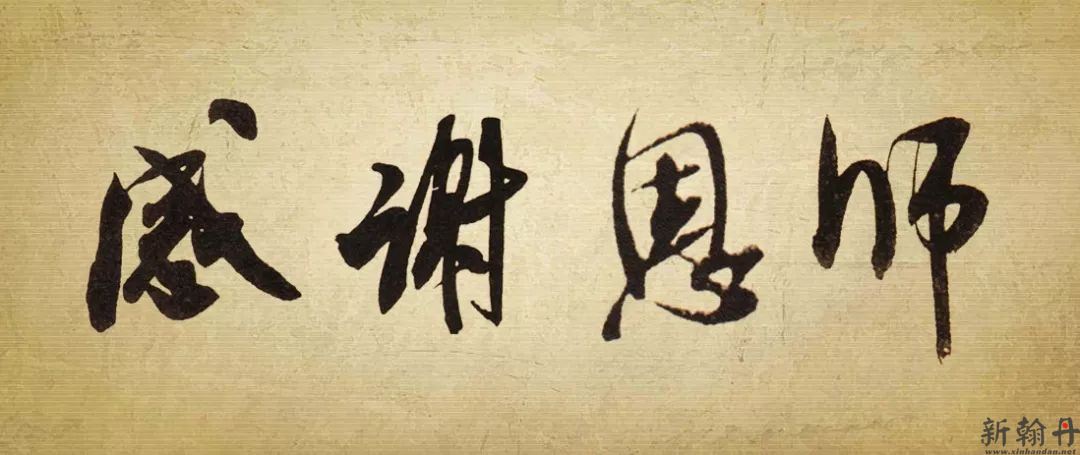 感谢恩师
新翰丹
www.xinhandan.net